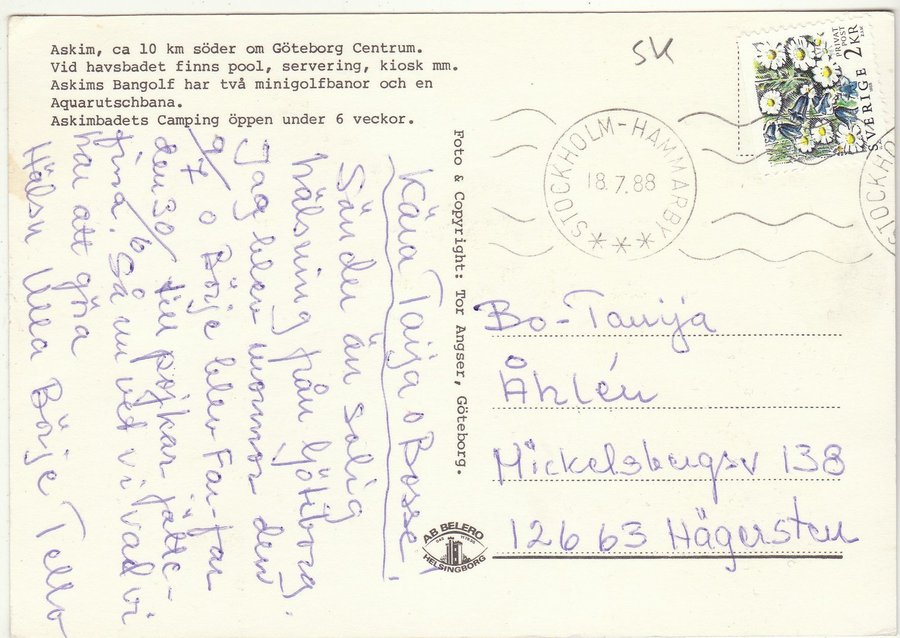 Askim, ca 10 km söder om Göteborg Centrum.
Vid havsbadet finns pool, servering, kiosk mm.
Askims Bangolf har två minigolfbanor och en
Aquarutschbana.
Askimbadets Camping öppen under 6 veckor.
Kära Taija o Bosse.
Sänder än solig
hälsning från Götiborg.
Jag blev mormor den
9/7 o Börje blev Far-far
den 30/6 till pojkar jätte-
fina. Så nu vet vi vad vi
har att göra
Hälsn Ulla Börje Tello
Foto & Copyright: Tor Angser, Göteborg.
AB BELERO
HELSINGBORG
SK
STOCKHOLM-HAMMARBY
18.7.88
PRIVAT
POST
SVERIGE 2 KR
STOCKHO
Bo-Tanija
Åhlén
Mickelsbergsv 138
126 63 Hägersten